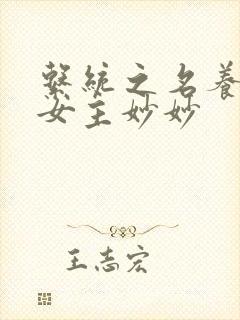 繫統之名養
女主妙妙
王志宏